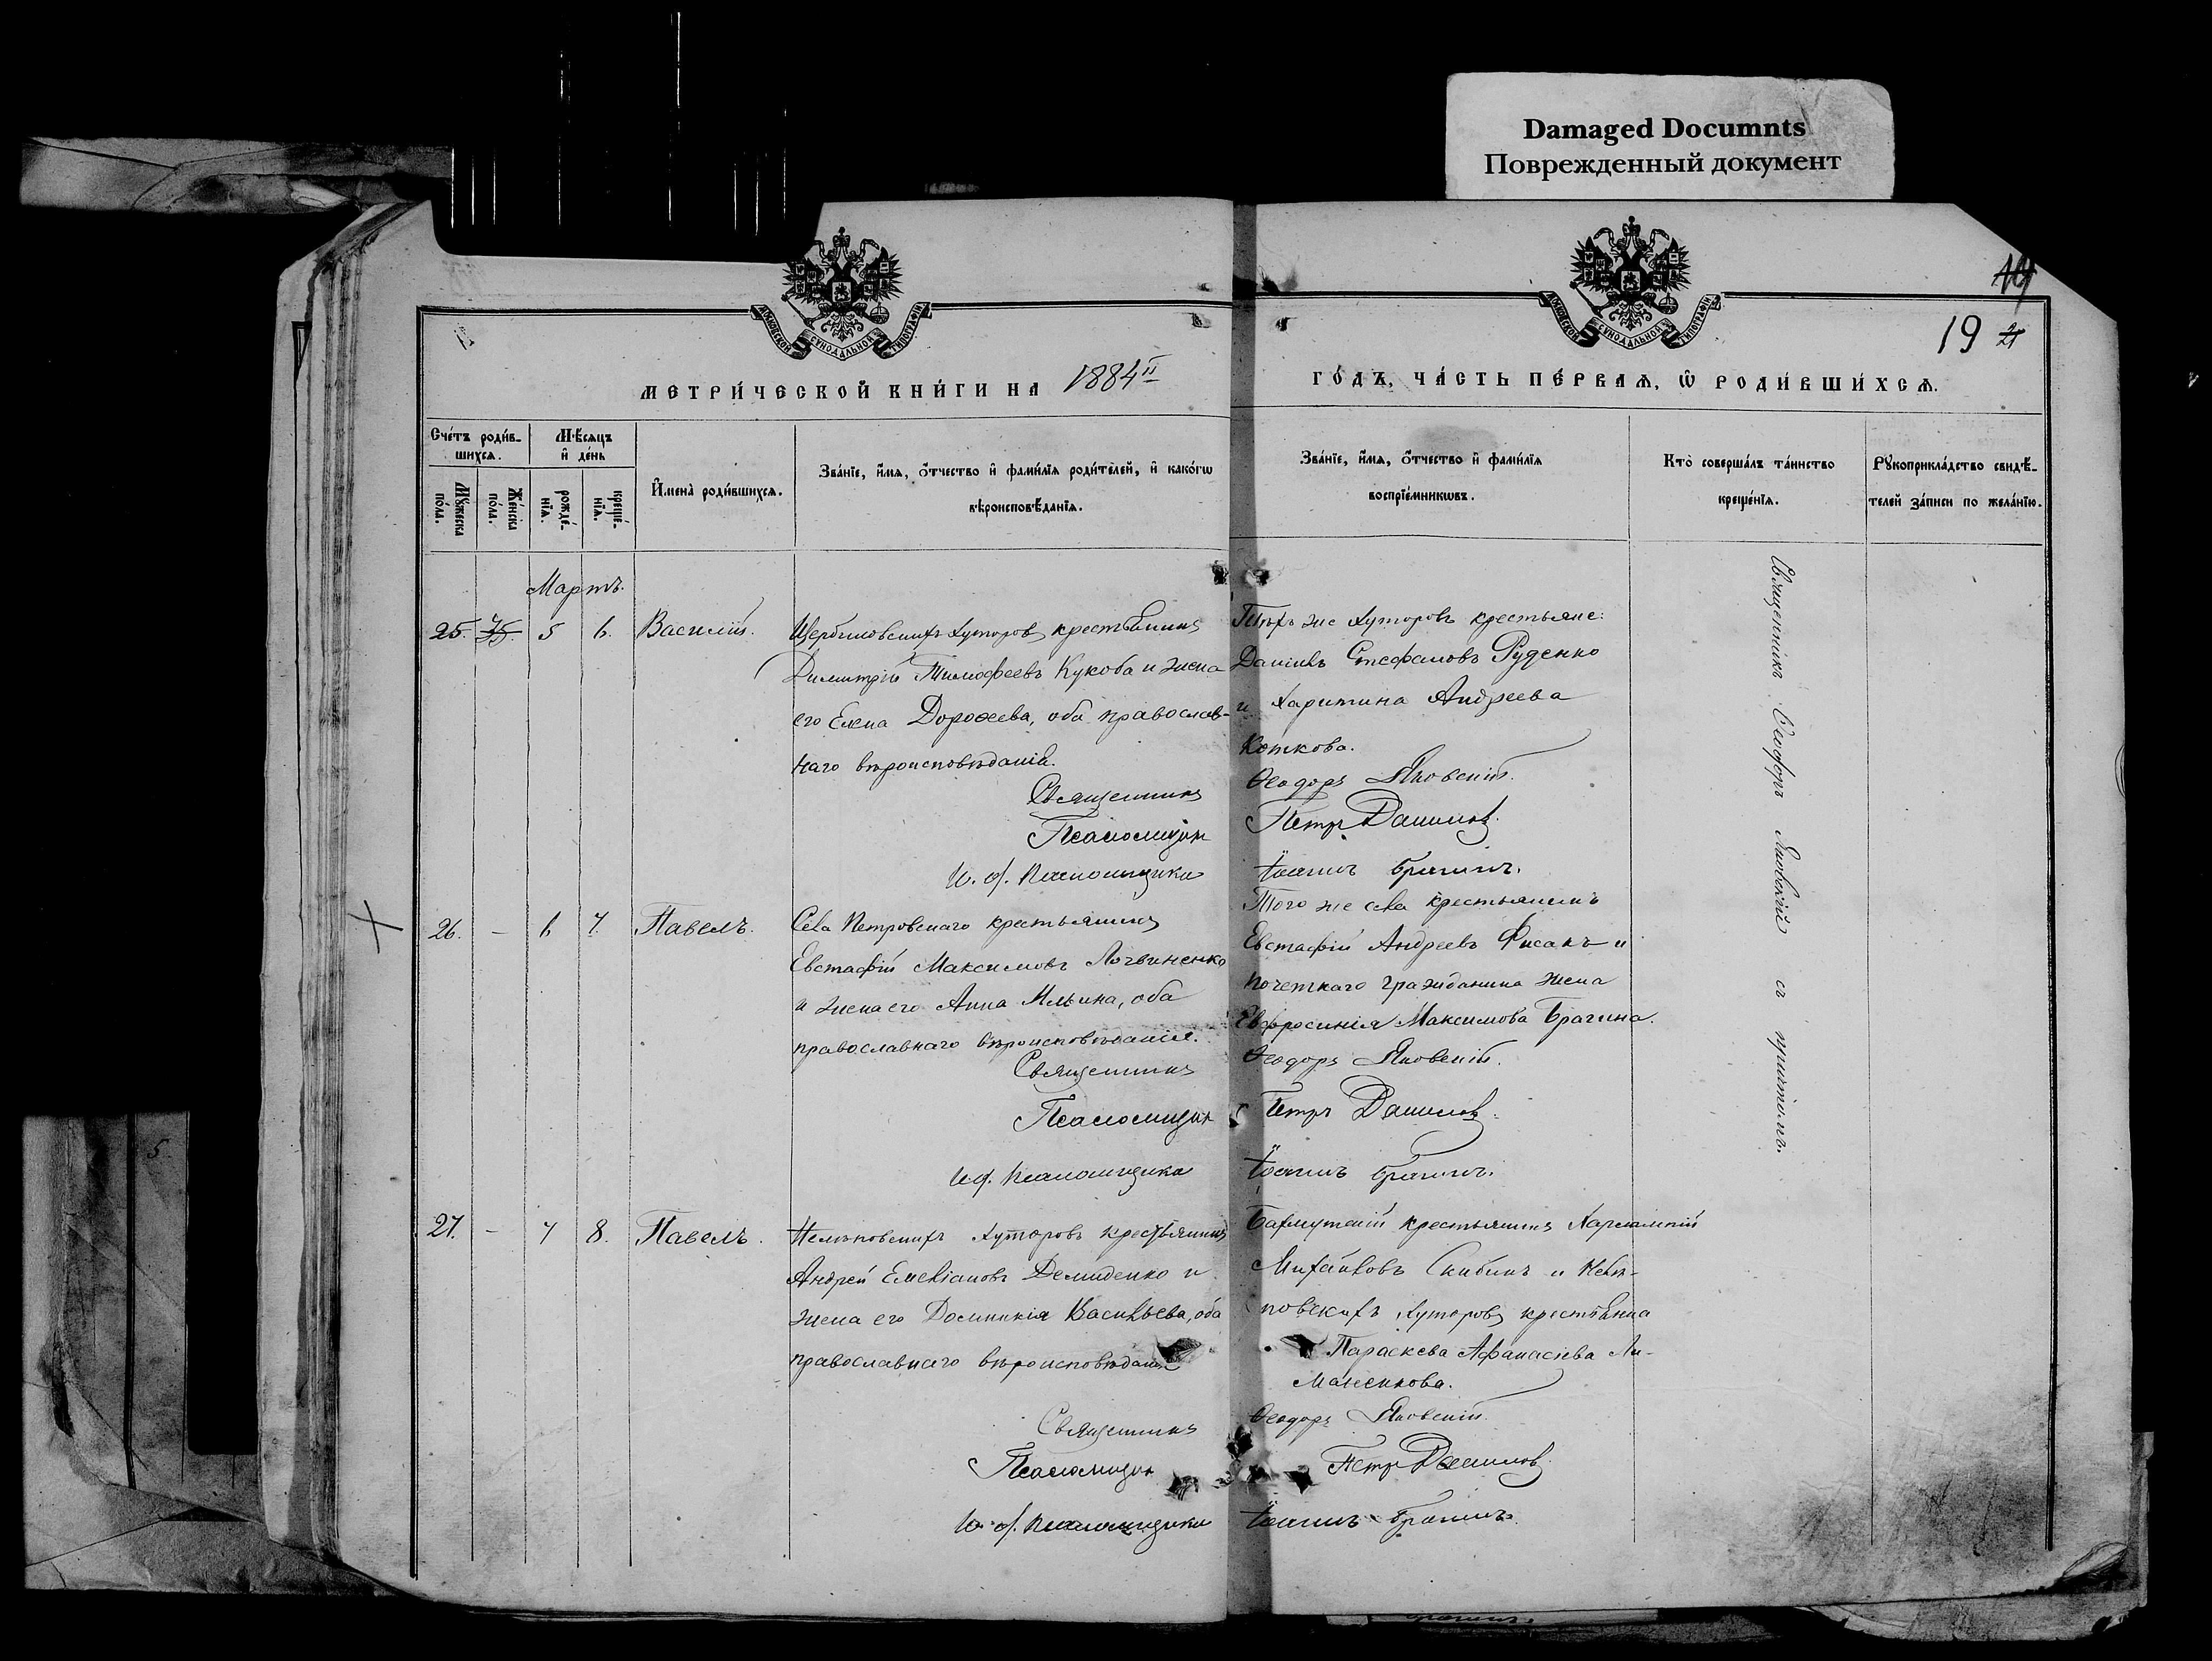 Damaged Documnts
Поврежденный документ
19 21
МЕТРИ́ЧЕСКОЙ КНИ́ГИ НА 1884й
ГО́ДЪ, ЧА́СТЬ ПЕ́РВАѦ, Ѽ РОДИ́ВШИХСѦ.
Сче́тъ роди́в-
шихсѧ.
Мѣсѧцъ
и де́нь
Мꙋ́жеска
по́ла.
Же́нска
по́ла.
рожде́-
нїѧ.
креще́-
нїѧ.
И́мена роди́вшихсѧ.
Зва́нїе, и́мѧ, ѻ́тчество и фами́лїѧ роди́телей, и како́гѡ
вѣроисповѣ́данїѧ.
Зва́нїе, и́мѧ, ѻ́тчество и фами́лїѧ
воспрїе́мникѡвъ.
Кто̀ соверша́лъ та́инство
креще́нїѧ.
Рꙋкоприкла́дство свидѣ́-
телей за́писи по жела́нїю.
Мартъ.
25. 5 6. Василій.
Щербиновскихъ хуторовъ крестьянинъ
Димитрій Тимофеевъ Кукоба и жена
его Елена Дорофеева, оба православ-
наго вѣроисповѣданія.
Священникъ
Псаломщикъ
И. д. псаломщика
Тѣхъ же хуторовъ крестьяне:
Даніилъ Стефановъ Руденко
и Харитина Андреева
Коткова.
Ѳеодоръ Яновскій.
Петръ Даниловъ.
Іоаннъ Брагинъ.
26. – 6 7. Павелъ.
Села Петровскаго крестьянинъ
Евстафій Максимовъ Логвиненко
и жена его Анна Ильина, оба
православнаго вѣроисповѣданія.
Священникъ
Псаломщикъ
И.д. псаломщика
Того же села крестьянинъ
Евстафій Андреевъ Фисакъ и
почетнаго гражданина жена
Евфросинія Максимова Брагина.
Ѳеодоръ Яновскій.
Петръ Даниловъ.
Іоаннъ Брагинъ.
27. – 7 8. Павелъ.
Нелѣповскихъ хуторовъ крестьянинъ
Андрей Емеліановъ Демиденко и
жена его Домникія Васильева, оба
православнаго вѣроисповѣданія
Священникъ
Псаломщикъ
И. д. псаломщика
Бахмутскій крестьянинъ Харлампій
Михайловъ Скибинъ и Нелѣ-
повскихъ хуторовъ крестьянка
Параскева Афанасіева Ли-
маненкова.
Ѳеодоръ Яновскій.
Петръ Даниловъ.
Іоаннъ Брагинъ.
Священникъ Ѳеодоръ Яновскій съ причтомъ.